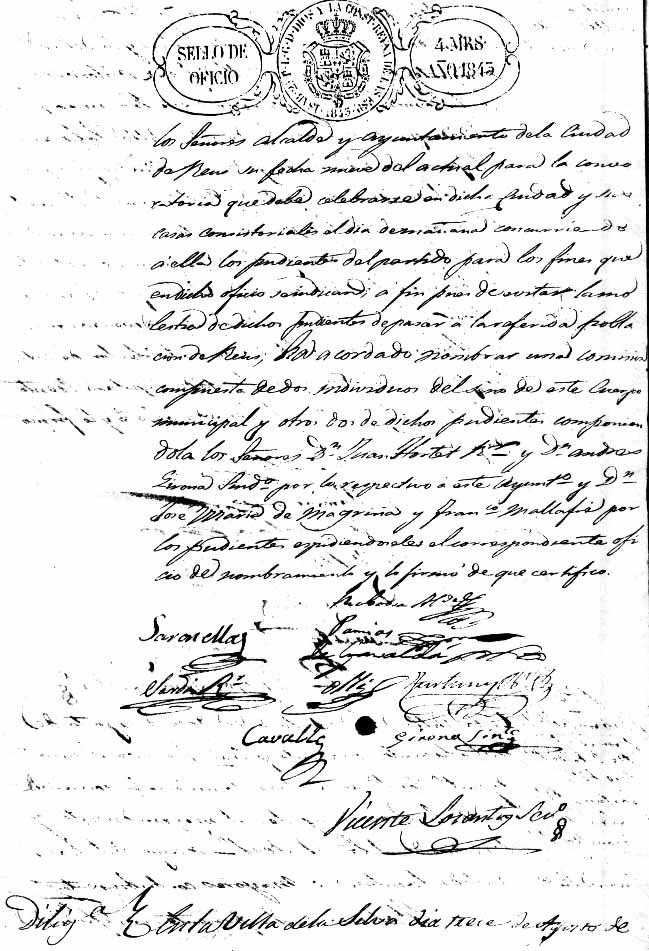 SELLO DE OFICIO
4. MRS. AÑO 1843
los Señores Alcalde y Ayuntamiento dela Ciudad
de Reus su fecha nueve del actual para la convo
catoria que debe celebrarse en dicha Ciudad y sus
casas consistoriales el dia demañana concurriendo
á ella los pudientes del partido para los fines que
en dicho oficio se indican; a fin pues de evitar la mo
lestia de dichos pudientes de pasar á la referida pobla
cion de Reus, Ha acordado nombrar una comision
compuesta de dos individuos del seno de este Cuerpo
municipal y otros dos de dichos pudientes componien
dola los Señores Dn Juan Hortet y Dn Andres
Girona Sindo por lo respectivo a este Ayunto y Dn
José Maria de Magriña y Franco Mallafré por
los pudientes espidiendoseles el correspondiente ofi
cio de nombramiento y lo firmó de que certifico.
Cavallé
Girona Sindo
Vicente Scvo
Diliga En la Villa dela Selva dia trece de Agosto de